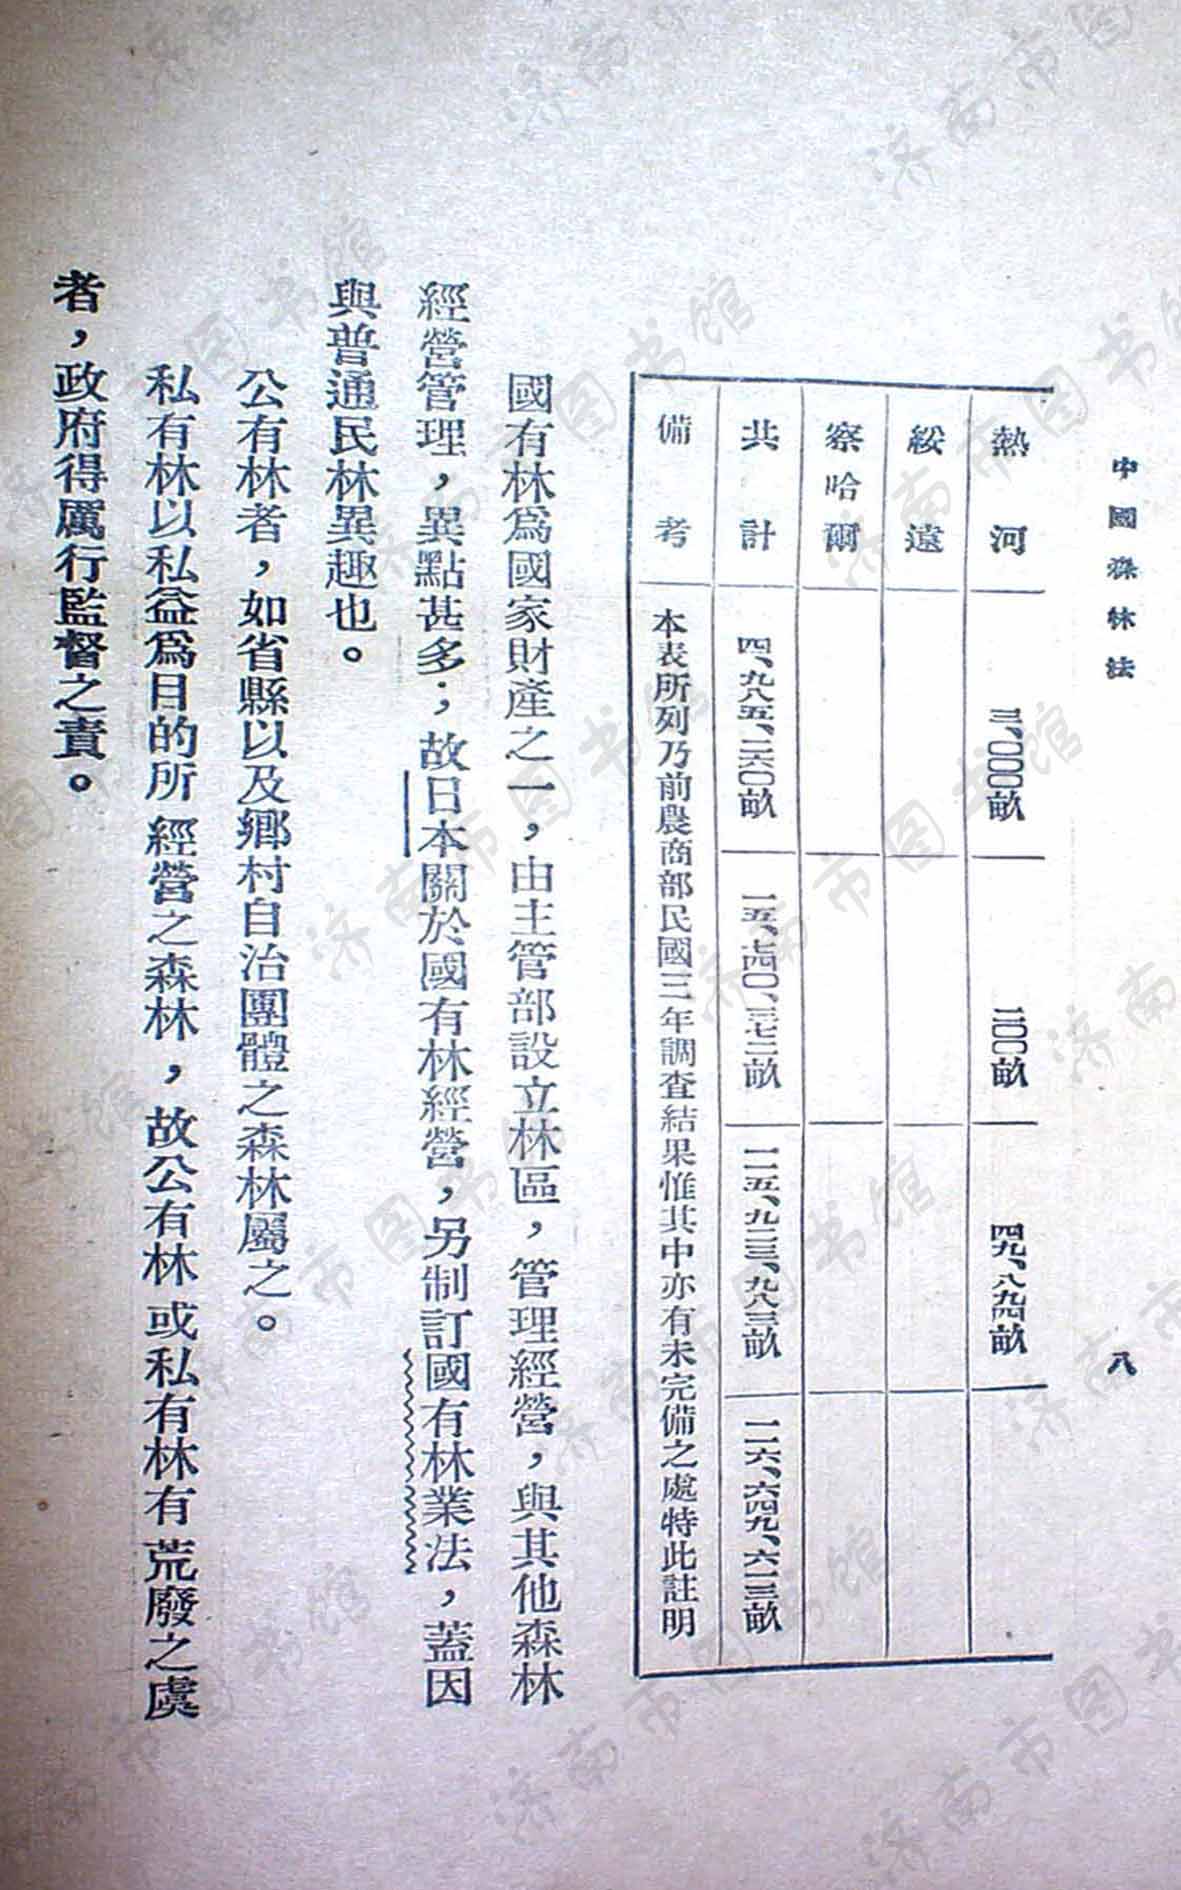 中國森林法
八
熱河 三、〇〇〇畝 二〇〇畝 四九、八九四畝
綏遠
察哈爾
共計 四、九八五、二六〇畝 一五、七四〇、三七二畝 一一五、九二三、九八三畝 一二六、六四九、六一三畝
備考 本表所列乃前農商部民國三年調查結果惟其中亦有未完備之處特此註明
國有林爲國家財產之一，由主管部設立林區，管理經營，與其他森林
經營管理，異點甚多；故日本關於國有林經營，另制訂國有林業法，蓋因
與普通民林異趣也。
公有林者，如省縣以及鄉村自治團體之森林屬之。
私有林以私益爲目的所經營之森林，故公有林或私有林有荒廢之處
者，政府得厲行監督之責。
济南市图书馆